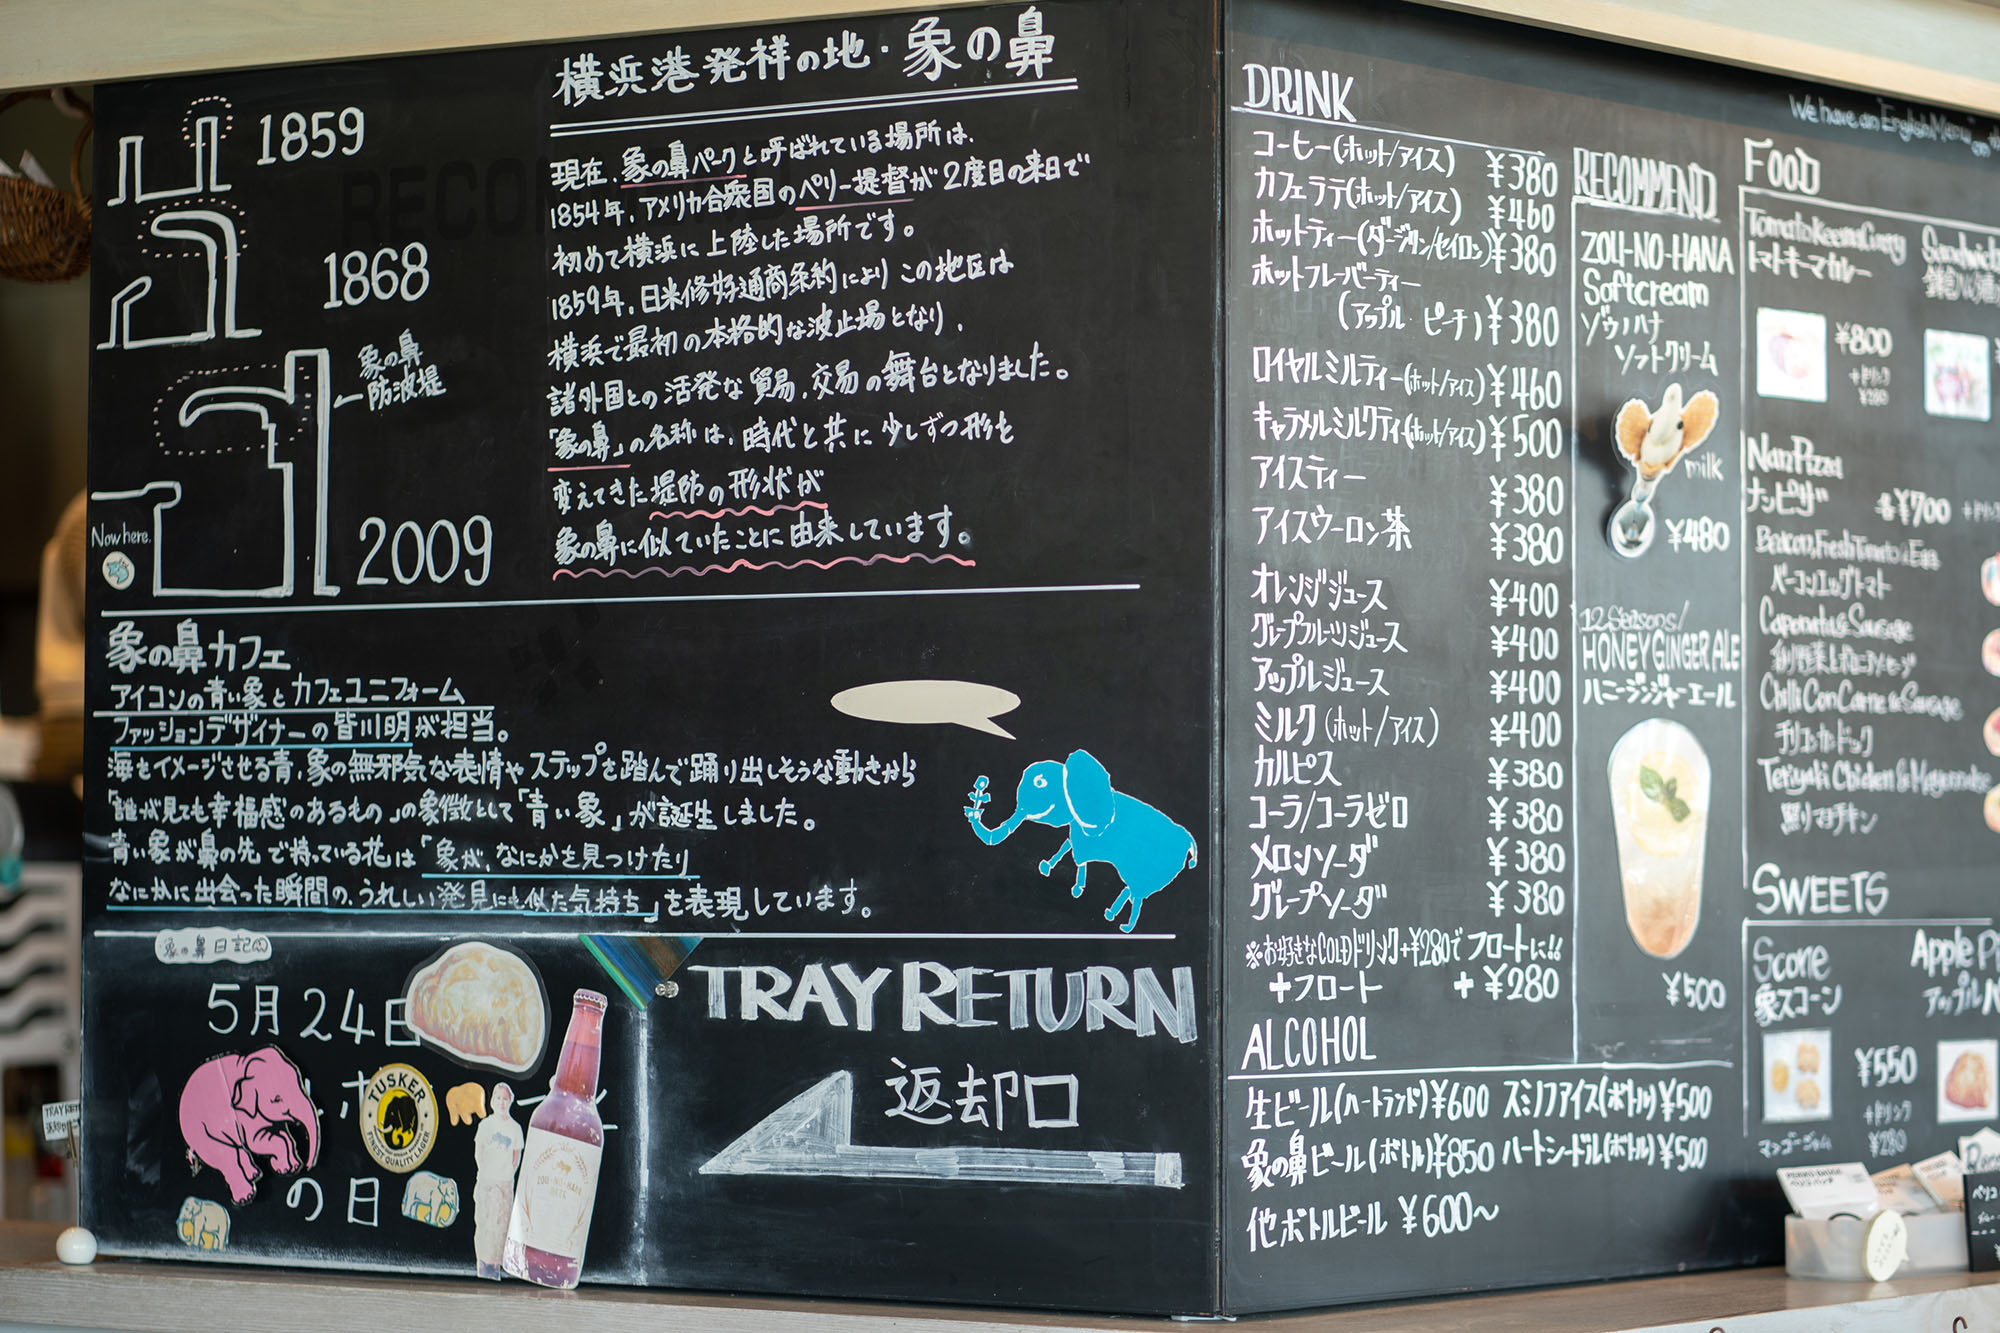 横浜港発祥の地・象の鼻
1859
1868
象の鼻
防波堤
2009
Now here.
現在、象の鼻パークと呼ばれている場所は、
1854年、アメリカ合衆国のペリー提督が2度目の来日で
初めて横浜に上陸した場所です。
1859年、日米修好通商条約によりこの地区は
横浜で最初の本格的な波止場となり、
諸外国との活発な貿易、交易の舞台となりました。
「象の鼻」の名称は、時代と共に少しずつ形を
変えてきた堤防の形状が
象の鼻に似ていたことに由来しています。
象の鼻カフェ
アイコンの青い象とカフェユニフォーム
ファッションデザイナーの皆川明が担当。
海をイメージさせる青、象の無邪気な表情やステップを踏んで踊り出しそうな動きから
「誰が見ても幸福感のあるもの」の象徴として「青い象」が誕生しました。
青い象が鼻の先で持っている花は「象が、なにかを見つけたり
なにかに出会った瞬間の、うれしい発見にも似た気持ち」を表現しています。
象の鼻日記
5月24日
の日
TUSKER
FINEST QUALITY LAGER
ZOU-NO-HANA
BEER
TRAY RETURN
返却口
DRINK
コーヒー(ホット/アイス) ¥380
カフェラテ(ホット/アイス) ¥460
ホットティー(ダージリン/セイロン) ¥380
ホットフレーバーティー
(アップル ピーチ) ¥380
ロイヤルミルティー(ホット/アイス) ¥460
キャラメルミルクティ(ホット/アイス) ¥500
アイスティー ¥380
アイスウーロン茶 ¥380
オレンジジュース ¥400
グレープフルーツジュース ¥400
アップルジュース ¥400
ミルク(ホット/アイス) ¥400
カルピス ¥380
コーラ/コーラゼロ ¥380
メロンソーダ ¥380
グレープソーダ ¥380
※お好きなCOLDドリンク+¥280でフロートに!!
+フロート +¥280
ALCOHOL
生ビール(ハートランド) ¥600 スミノフアイス(ボトル) ¥500
象の鼻ビール(ボトル) ¥850 ハートシードル(ボトル) ¥500
他ボトルビール ¥600〜
RECOMMEND
ZOU-NO-HANA
Softcream
ゾウノハナ
ソフトクリーム
milk
¥480
12 Seasons/
HONEY GINGER ALE
ハニージンジャーエール
¥500
We have an English Menu
FOOD
Tomato Keema Curry
トマトキーマカレー
¥800
+ドリンク
¥280
Nan Pizza
ナンピザ 各¥700
Bacon, Fresh Tomato & Egg
ベーコンエッグトマト
Caponata & Sausage
Chilli Con Carne & Sausage
チリコンカンドッグ
Teriyaki Chicken & Mayonnaise
照りマヨチキン
SWEETS
Scone
象スコーン
¥550
+ドリンク
¥280
マンゴージャム
Apple Pi
アップルパ